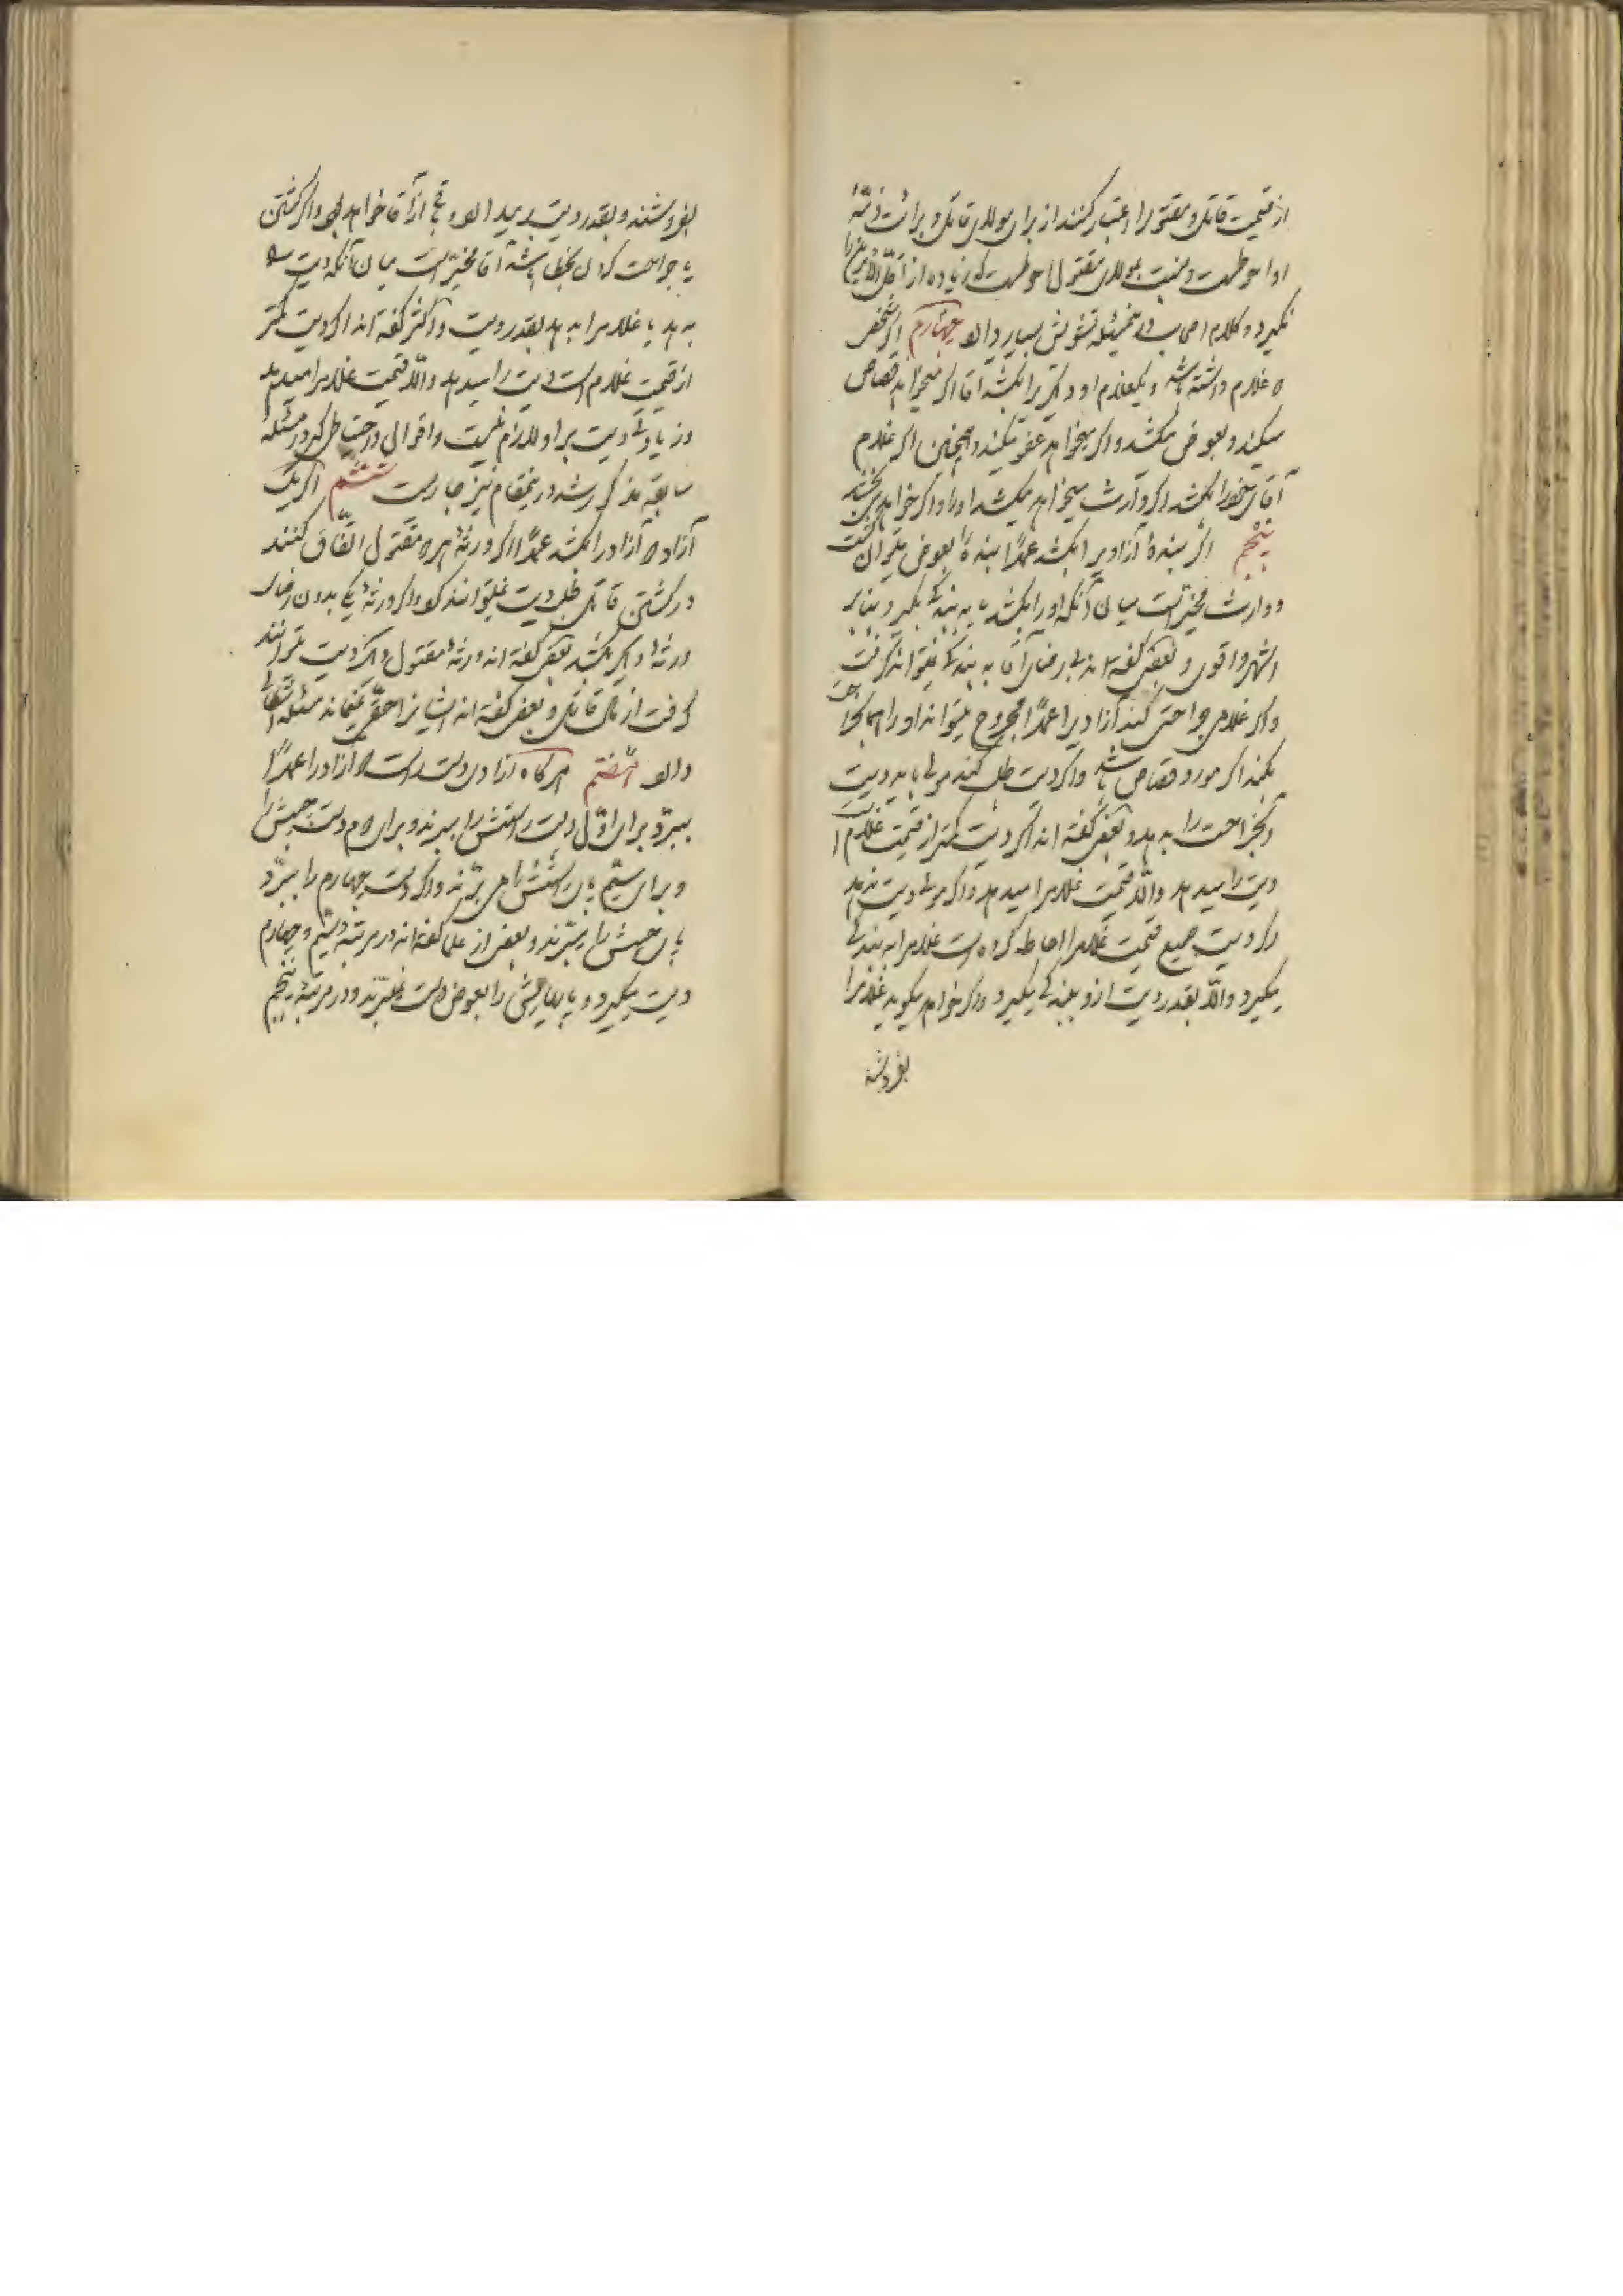 از قیمت قاتل و مقتول را اعتبار کنند از برای مولای قاتل و برائت ذمّهٔ
او احوطست و نسبت بمولای مقتول احوطست که زیاده از اقلّ الامرین را
نگیرد و کلام اصحاب در این مسئله تشویش بسیار دارد چهارم اگر شخصی
دو غلام داشته باشد و یکغلام او دیگریرا بکشد آقا اگر میخواهد قصاص
میکند و بعوض میکشد و اگر میخواهد عفو میکند و همچنین اگر غلام
آقای خود را بکشد اگر وارث میخواهد میکشد او را و اگر خواهد می بخشد
پنجم اگر بندهٔ آزادیرا بکشد عمدًا بنده را بعوض میتوان کشت
و وارث مخیّر است میان آنکه او را بکشد یا به بندگی بگیرد بنابر
اشهر و اقوی و بعضی گفته اند بی رضای آقا به بندگی نمیتواند گرفت
و اگر غلامی جراحتی کند آزادیرا عمدًا مجروح میتواند او را همان جراحت
بکند اگر مورد قصاص باشد و اگر دیت طلب کند مولی باید دیت
آنجراحت را بدهد و بعضی گفته اند اگر دیت کمتر از قیمت غلام است
دیت را میدهد والّا قیمت غلام را میدهد و اگر مولی دیت ندهد
اگر دیت جمیع قیمت غلام را احاطه کرده است غلام را به بندگی
میگیرد والّا بقدر دیت از او ببندگی میگیرد و اگر خواهد میگوید غلام را
بفروشند
بفروشند و بقدر دیت بر میدارد و باقی از آقا خواهد بود و اگر کشتن
یا جراحت کردن بخطا باشد آقا مخیّر است میان آنکه دیت را
بدهد یا غلام را بدهد بقدر دیت و اکثر گفته اند اگر دیت کمتر
از قیمت غلام است دیت را میدهد والّا قیمت غلام را میدهد
و زیادتی دیت بر او لازم نیست و اقوالی و احتیاطی که در مسئلهٔ
سابقه مذکور شد در اینمقام نیز جاریست ششم اگر یک
آزاد دو آزاد را بکشد عمدًا اگر ورثهٔ هر دو مقتول اتّفاق کنند
در کشتن قاتل طلب دیت نمیتوانند کرد و اگر ورثهٔ یکی بدون رضای
ورثهٔ دیگر بکشد بعضی گفته اند ورثهٔ مقتول دیگر دیت میتوانند
گرفت از مال قاتل و بعضی گفته اند ایشانرا حقّی نمیماند مسئله اشکالی
دارد هفتم هرگاه آزادی دست راست دو آزاد را عمدًا
ببرّد برای اوّل دست راستش را میبرند و برای دوم دست چپش را
و برای سیّم پای راستش را می برّند و اگر دست چهارم را ببرّد
پای چپش را میبرّند و بعضی از علما گفته اند در مرتبهٔ سیّم و چهارم
دیت میگیرد و پاهایش را بعوض دست نمیبرّند و در مرتبهٔ پنجم